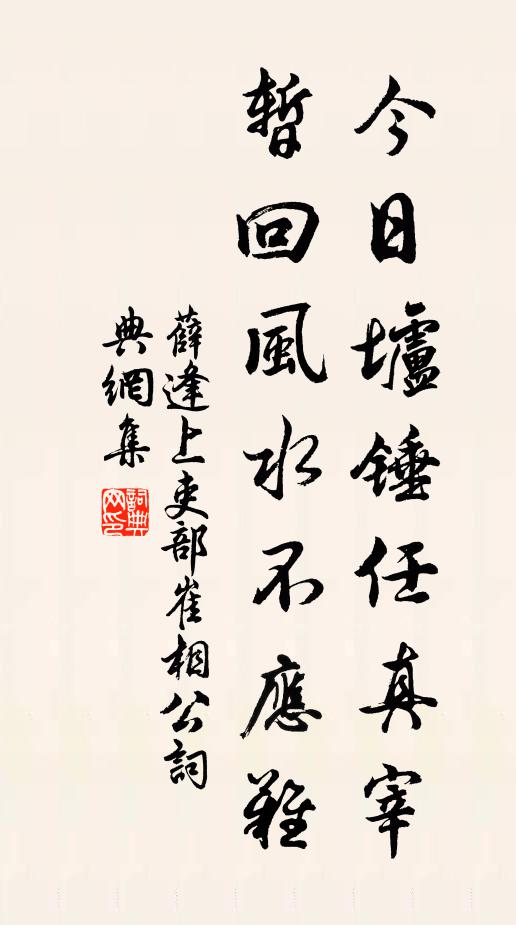 今日壚錘任真宰
暫回風水不應難
薛逢上吏部崔相公詞
典網集
詞典網印